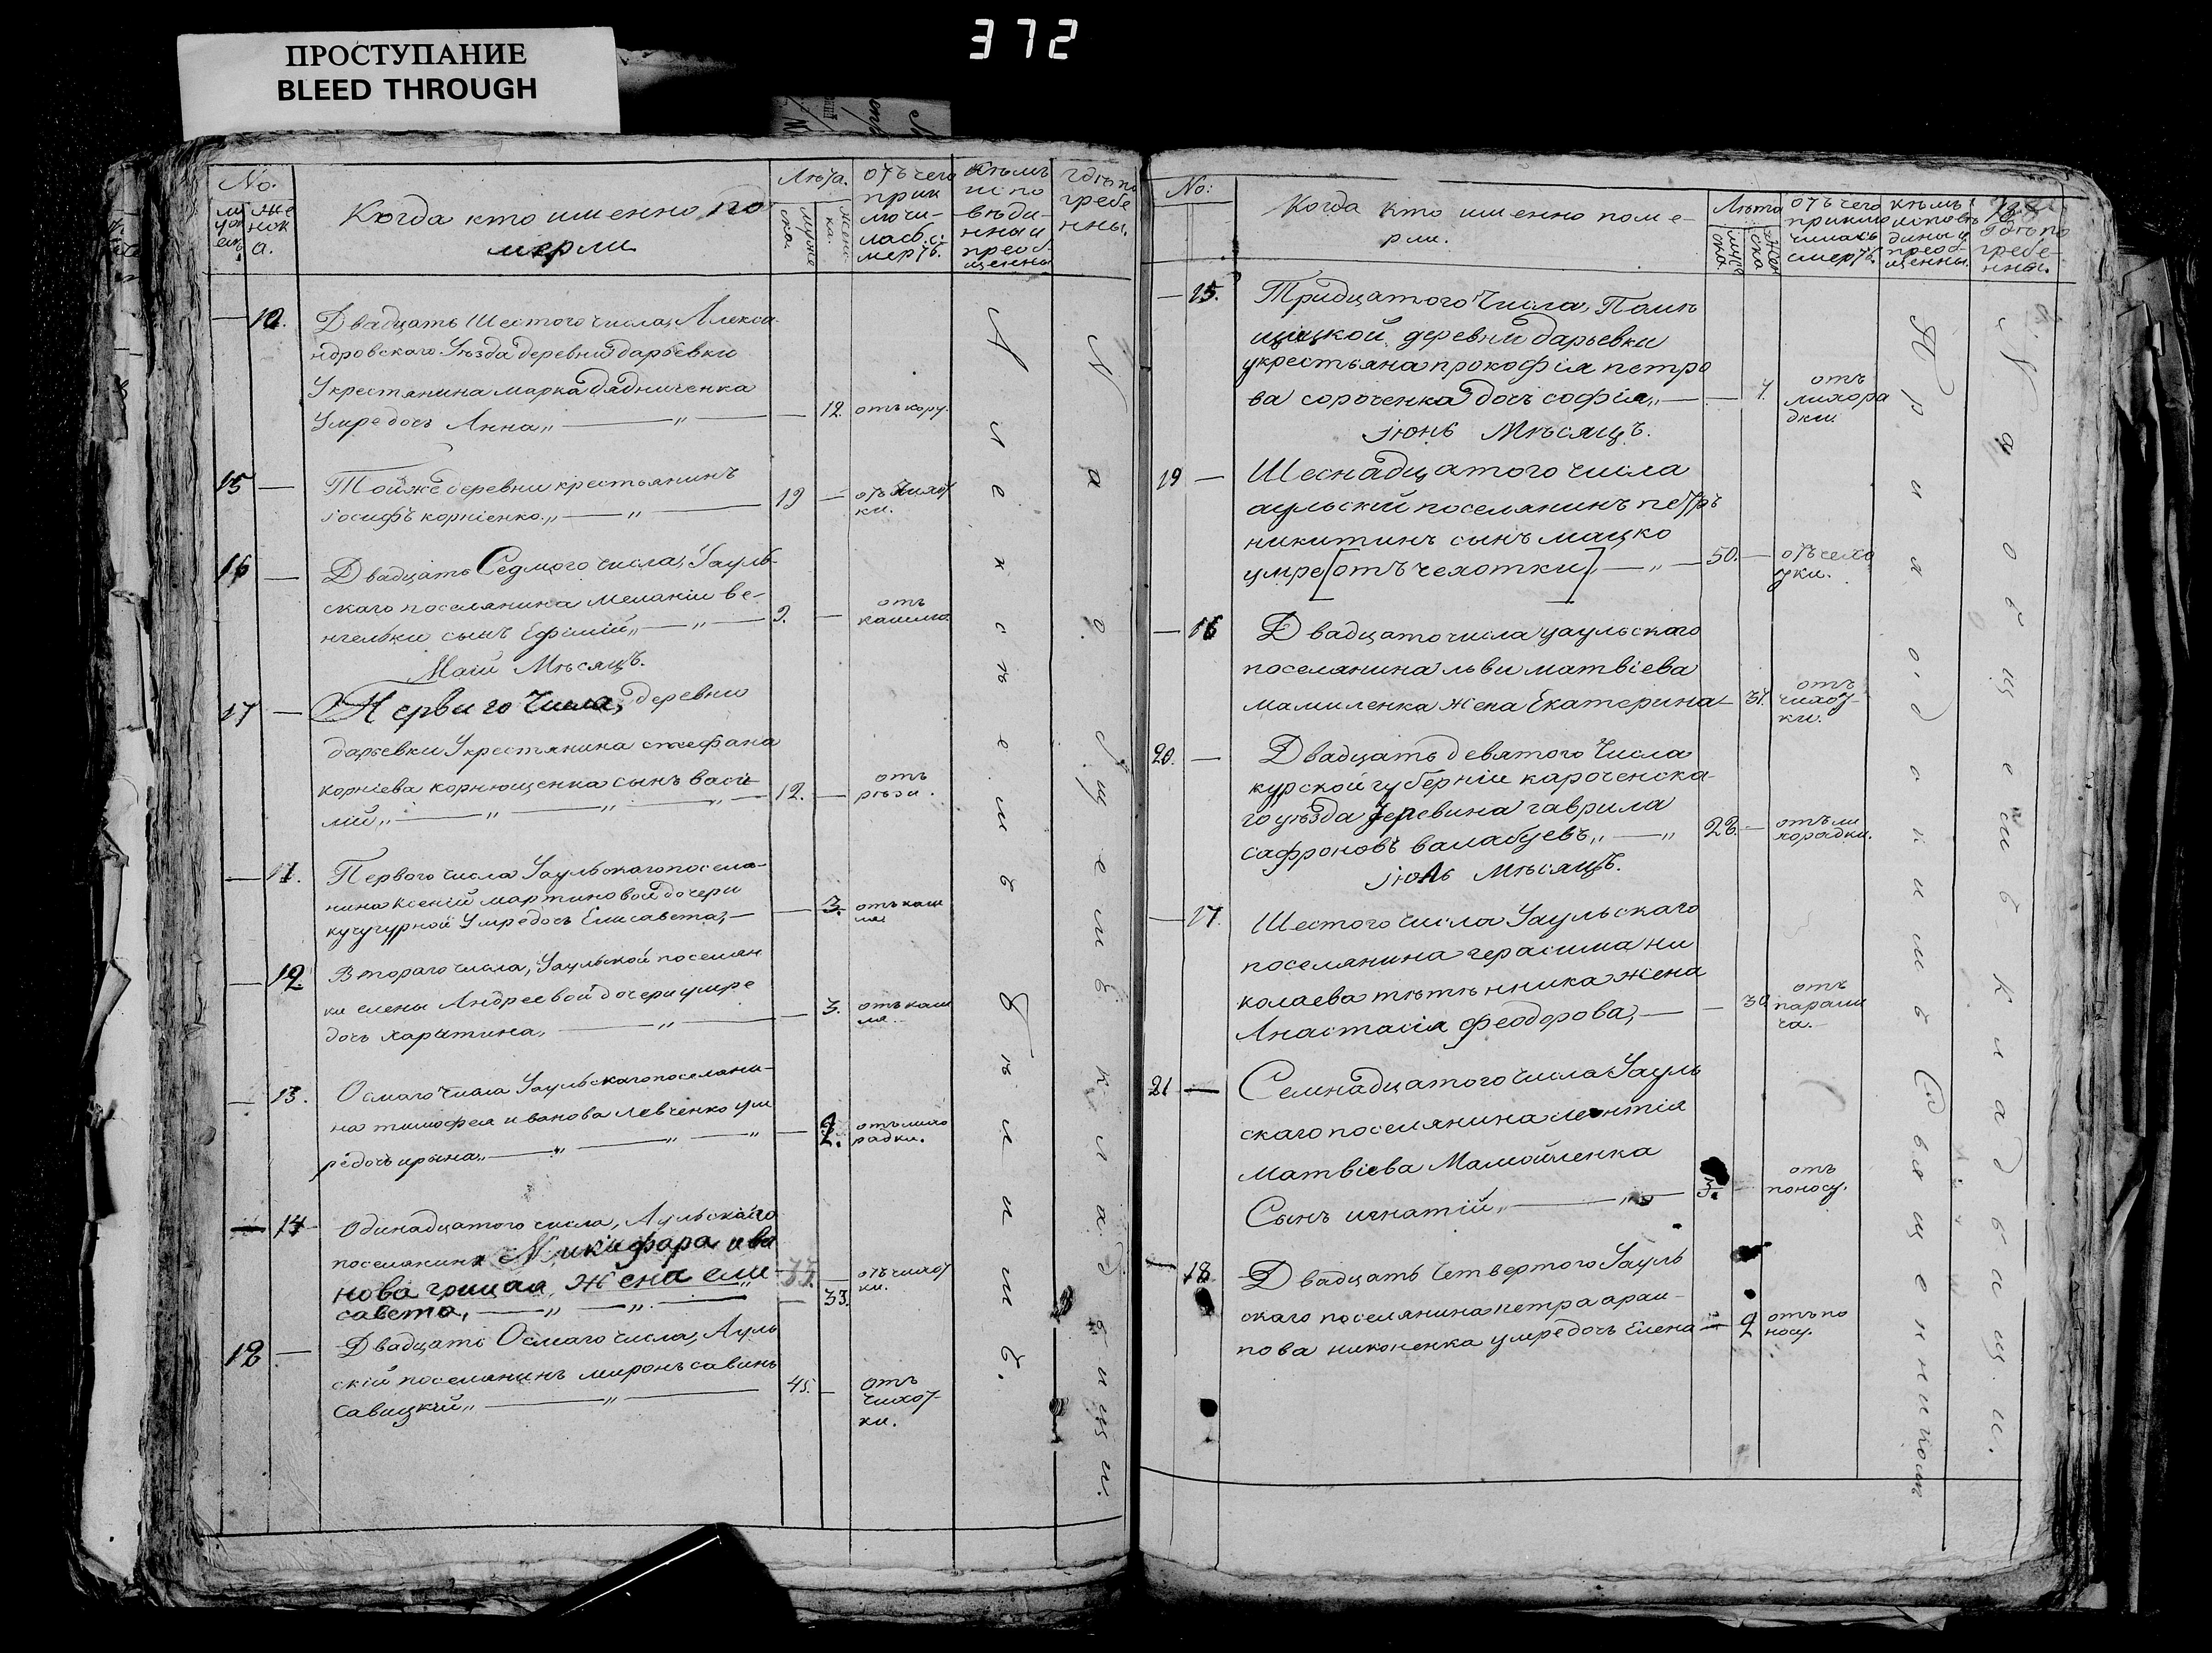 372
ПРОСТУПАНИЕ
BLEED THROUGH
No.
Когда кто именно по
мерли
Лѣта.
муже
ска.
женс
ка.
отъ чего
прик
лючи-
лась с:
мерть.
кѣмъ
испо
вѣди-
нны и
преоб-
щенны
гдѣ по
гребе
нны.
10.
Двадцать Шестого числа, Алекса-
ндровскаго Уѣзда деревни дарьевки
Укрестянина марка дядниченка
Умре дочь Анна„ — „ — 12. отъ кору.
15 —
Тойже деревни крестьянинъ
іосифъ корніенко„ — „ — 19 —
16 —
Двадцать Седмого числа, Уауль-
скаго поселянина меланіи ве-
нгельки сынъ Ефимій„ — „ — 2. — отъ
кашлю.
Маій Мѣсяцъ.
17 — Первиго Числа, деревни
дарьевки Укрестянина стефана
корніева корнющенка сынъ васи-
лий„ — „ — „ — 12. — отъ
рѣзи.
— 11. Первого числа Уаульскаго посела-
нина ксеніи мартиновой дочери
кучугурной Умре дочь Елисавета, — 3. отъ каш
ля
— 12. Втораго числа, Уаульской поселян
ки елены Андреевой дочери умре
дочь харытина, — „ — 3. отъ каш
ля.
— 13. Осмаго числа Уаульскаго поселяни-
на тимофея иванова Левченко ум
ре дочь ирына„ — „ — „ — „ — 2. отъ лихо
радки.
— 14 Одинадцатого числа, Аульскаго
поселянина Микифара ива
нова грицая, жена ели — 33.
савета, — „ — „ — отъ чихот
ки.
18 — Двадцать Осмаго числа, Ауль
скій поселянинъ миронъ савинъ
Савицкій„ — „ — 45. — отъ
чихот-
ки.
Алексѣемъ
На общемъ кладбищи.
No:
Когда кто именно поме-
рли.
Лѣта
отъ чего
приклю
чилась
смерть.
кѣмъ
исповѣ
дины и
преоб-
щенны.
Гдѣ по
гребе-
нны.
— 15. Тридцатого Числа, Помѣ
щицкой деревни дарьевки
укрестьяна прокофія петро
ва сороченка дочь софія„ — 7. отъ
лихора
дки
іюнь Мѣсяцъ.
19 — Шеснадцатого числа
аульскій поселянинъ петръ
никитинъ сынъ мацко
умре [отъ чехотки] — „ — 50. — отъ чехо
тки.
— 16 Двадцато числа уаульского
поселянина льви матвіева
мамиленка жена Екатерина — 37. отъ
чихот-
ки.
20. — Двадцать девятого Числа
курской губерніи кароченска-
го уѣзда деревина гаврила
сафроновъ валабуевъ„ — „ 22. — отъ ли
хорадки.
іюль мѣсяцъ.
— 17. Шестого числа Уаульскаго
поселянина герасима ни
колаева тѣтѣнника жена
Анастасія феодорова, — 30 отъ
парали
ча.
21 — Семнадцатого числа Уауль
скаго поселянина леонтія
матвіева Мамойленка
Сынъ игнатій„ — „ — 3. отъ
поносу.
— 18 Двадцать Четвертого Уауль
скаго поселянина петра архи-
пова никоненка умре дочь Елена — 2 отъ по
носу.
Священникомъ
На общемъ кладбащи.